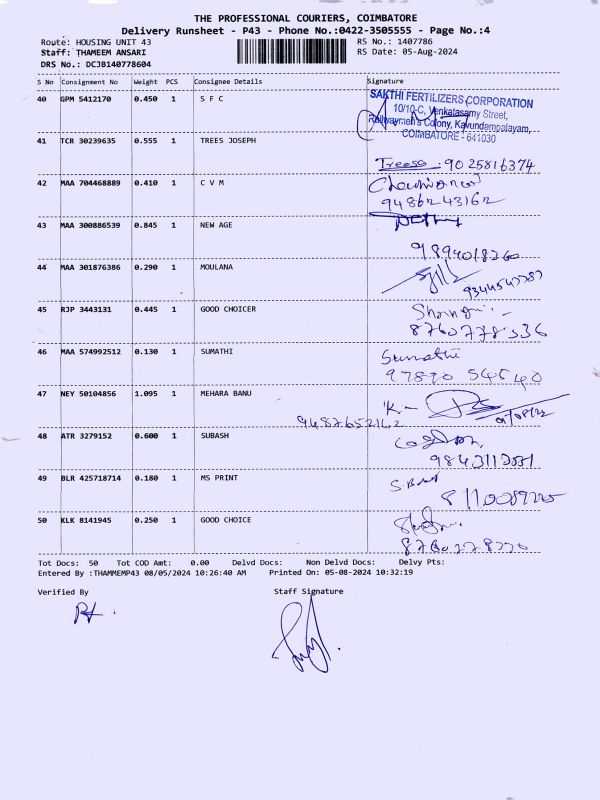 THE PROFESSIONAL COURIERS, COIMBATORE
Delivery Runsheet - P43 - Phone No.:0422-3505555 - Page No.:4
Route: HOUSING UNIT 43 RS No.: 1407786
Staff: THAMEEM ANSARI RS Date: 05-Aug-2024
DRS No.: DCJB140778604
S No Consignment No Weight PCS Consignee Details Signature
40 GPM 5412170 0.450 1 S F C
SAKTHI FERTILIZERS CORPORATION
10/10-C, Venkatasamy Street,
Railwaymen's Colony, Kavundampalayam,
COIMBATORE - 641030
41 TCR 30239635 0.555 1 TREES JOSEPH
Treesa: 9025816374
42 MAA 704468889 0.410 1 C V M
9486243162
43 MAA 300886539 0.845 1 NEW AGE
9894018260
44 MAA 301876386 0.290 1 MOULANA
45 RJP 3443131 0.445 1 GOOD CHOICER
46 MAA 574992512 0.130 1 SUMATHI
Sumathi
47 NEY 50104856 1.095 1 MEHARA BANU
K-
9487652142
48 ATR 3279152 0.600 1 SUBASH
49 BLR 425718714 0.180 1 MS PRINT
50 KLK 8141945 0.250 1 GOOD CHOICE
Tot Docs: 50 Tot COD Amt: 0.00 Delvd Docs: Non Delvd Docs: Delvy Pts:
Entered By :THAMMEMP43 08/05/2024 10:26:40 AM Printed On: 05-08-2024 10:32:19
Verified By Staff Signature